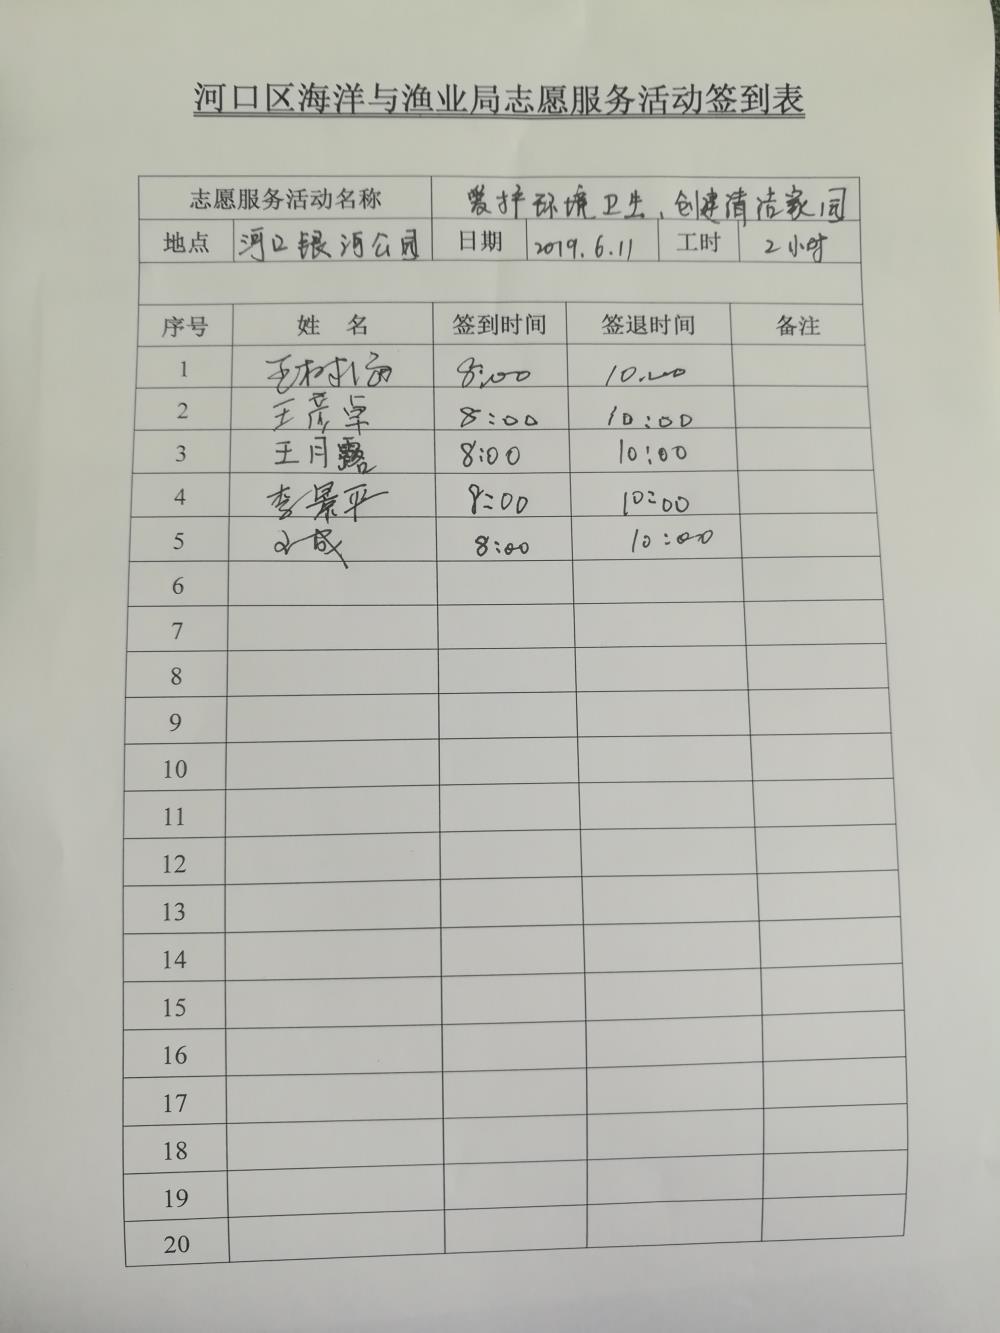 河口区海洋与渔业局志愿服务活动签到表
志愿服务活动名称 爱护环境卫生、创建清洁家园
地点 河口银河公园 日期 2019.6.11 工时 2小时
序号 姓 名 签到时间 签退时间 备注
1 王树海 8:00 10:00
2 王彦卓 8:00 10:00
3 王月露 8:00 10:00
4 李景平 8:00 10:00
5 8:00 10:00
6
7
8
9
10
11
12
13
14
15
16
17
18
19
20